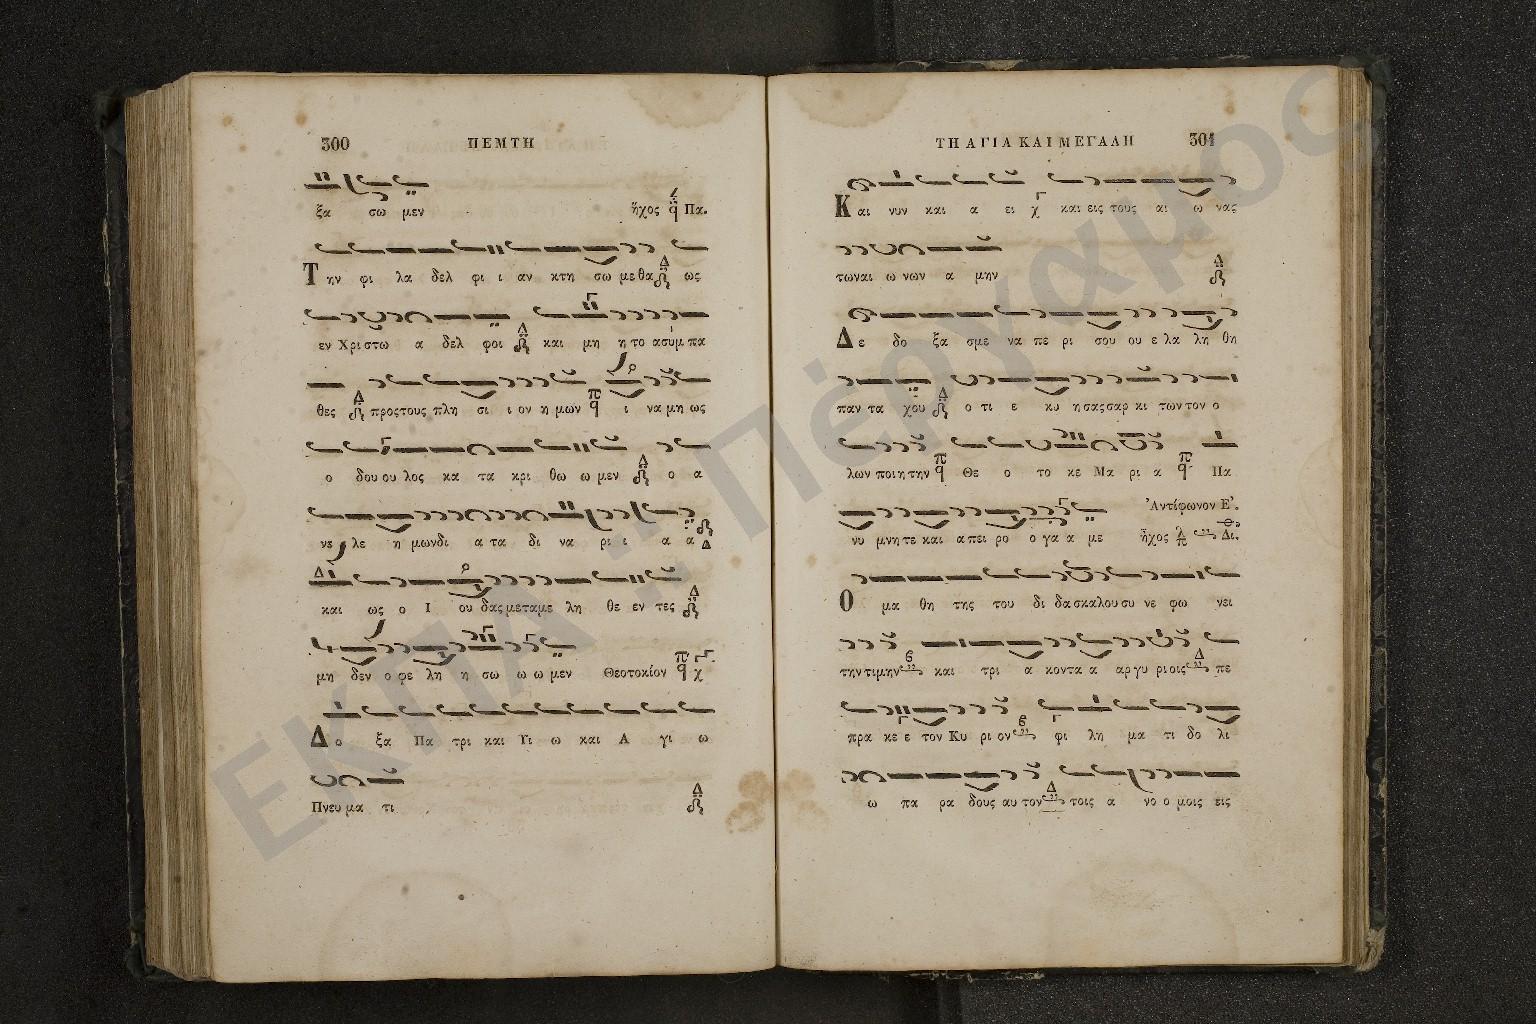 300 ΠΕΜΤΗ
ξα σω μεν ἦχος Πα.
Την φι λα δελ φι ι αν κτη σω με θα ως
εν Χρι στω α δελ φοι και μη η το ασυμ πα
θες προς τους πλη σι ι ον η μων ι να μη ως
ο δου ου λος κα τα κρι θω ω μεν ο α
νε λε η μων δι α τα δι να ρι ι α α
και ως ο Ι ου δας με τα με λη θε εν τες
μη δεν ο φε λη η σω ω ω μεν Θεοτοκίον
Δο ξα Πα τρι και Υι ω και Α γι ω
Πνευ μα τι
ΤΗ ΑΓΙΑ ΚΑΙ ΜΕΓΑΛΗ 301
Και νυν και α ει και εις τους αι ω νας
των αι ω νων α μην
Δε δο ξα σμε να πε ρι σου ου ε λα λη θη
παν τα χου ο τι ε κυ η σας σαρ κι των τον ο
λων ποι η την Θε ο το κε Μα ρι α Πα
νυ μνη τε και α πει ρο ο γα α με ἦχος Δι.
Ἀντίφωνον Ε'.
Ο μα θη της του δι δα σκα λου συ νε φω νει
την τι μην και τρι α κον τα α αρ γυ ρι οις πε
πρα κε ε τον Κυ ρι ον φι λη μα τι δο λι
ω πα ρα δους αυ τον τοις α νο ο μοις εις
ΕΚΠΑ :: Πέργαμος